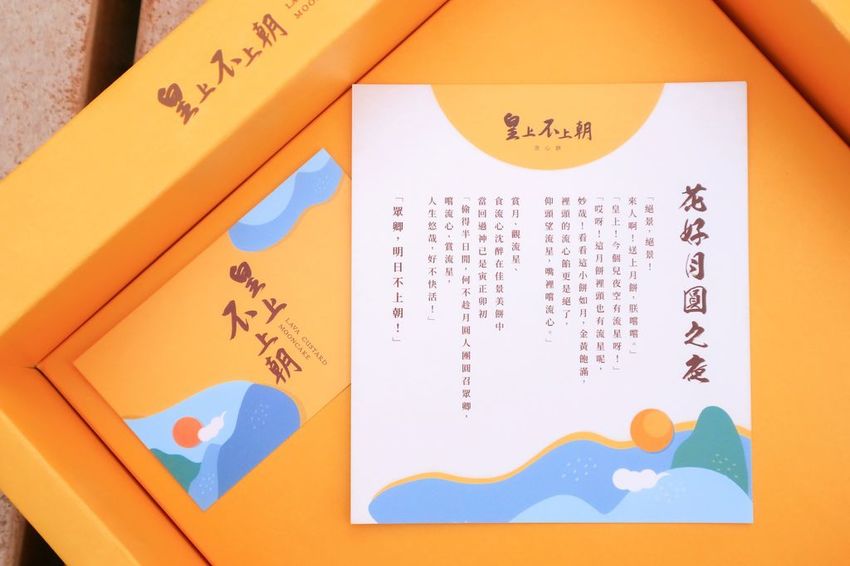 皇上不上朝
LAVA
MOON
皇上
不上朝
LAVA CUSTARD
MOONCAKE
皇上不上朝
流心餅
花好月圓之夜
「絕景，絕景！
來人啊！送上月餅，朕嚐嚐。」
「皇上！今個兒夜空有流星呀！」
「哎呀！這月餅裡頭也有流星呢，
妙哉！看看這小餅如月，金黃飽滿，
裡頭的流心餡更是絕了，
仰頭望流星，嘴裡嚐流心。」
賞月、觀流星、
食流心沈醉在佳景美餅中
當回過神已是寅正卯初
「偷得半日閒，何不趁月圓人團圓召眾卿，
嚐流心，賞流星，
人生悠哉，好不快活！」
「眾卿，明日不上朝！」